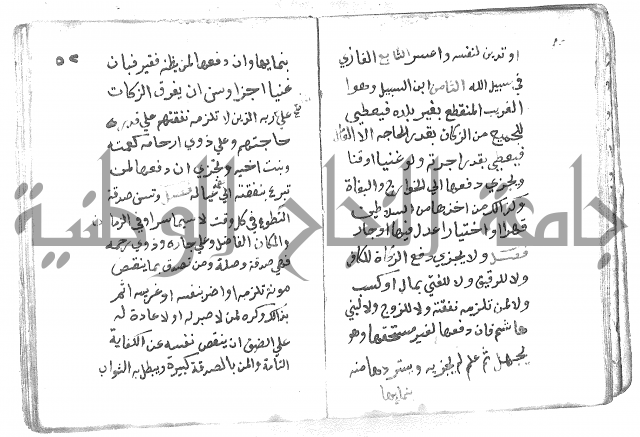 او تدين لنفسه واعسر السابع الغازي
في سبيل الله الثامن ابن السبيل وهوا
الغريب المنقطع بغير بلده فيعطي
للجميع من الزكاة بقدر الحاجه الا العامل
فيعطي بقدر اجرته ولو غنيا او قنا
ويجزي دفعها الي الخوارج والبغاة
وكذلك من اخذها من السلاطين
قهرا او اختيارا عدل فيها او جار
فصل ولا يجزي دفع الزكاة للكافر
ولا للرقيق ولا للغني بمال او كسب
ولا لمن تلزمه نفقته ولا للزوج ولا لبني
هاشم فان دفعها لغير مستحقها وهو
يجهل ثم علم لم يجزيه ويستردها منه
بنمايها
٥٢
بنمايها وان دفعها لمن يظنه فقير فبان
غنيا اجزا وسن ان يفرق الزكات
علي اقاربه الذين لا تلزمه نفقتهم علي قدر
حاجتهم وعلي ذوي ارحامه كعمته
وبنت اخيه وتجزي ان دفعها لمن
تبرع بنفقته الي عياله فصل وتسن صدقة
التطوع في كل وقت لا سيما سرا وفي الزمان
والمكان الفاضل وعلي جاره وذوي رحمه
فهي صدقة وصلة ومن تصدق بما ينقص
مونة تلزمه او اضر بنفسه او غريمه اثم
بذلك وكره لمن لا صبر له او لا عادة له
علي الضيق ان ينقص نفسه عن الكفاية
التامة والمن بالصدقة كبيرة ويبطل به الثواب
جامعة النجاح الوطنية